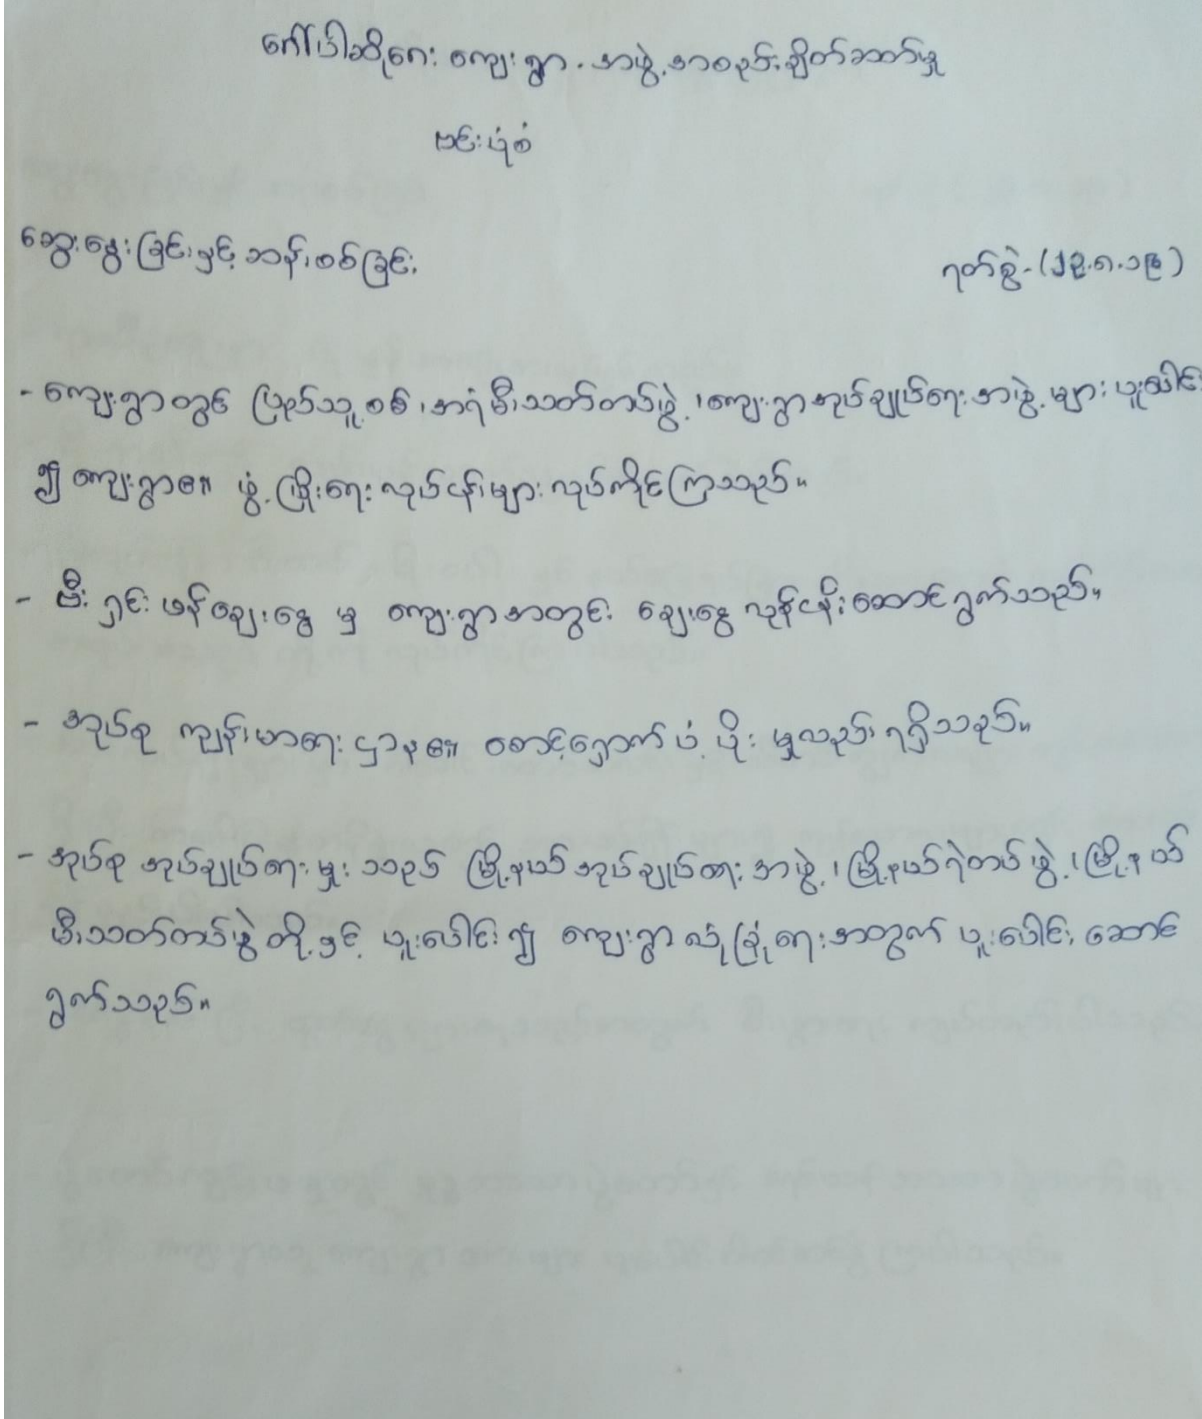 ဒေါ်ပါဆိုဒေး ကျေးရွာ - အဖွဲ့အစည်းချိတ်ဆက်မှု
ဗင်းပုံစံ
ဆွေးနွေးခြင်းနှင့် ဆန်းစစ်ခြင်း
ရက်စွဲ-(၂၉.၈.၁၉)
- ကျေးရွာတွင် ပြည်သူ့စစ်၊ အရံမီးသတ်တပ်ဖွဲ့၊ ကျေးရွာအုပ်ချုပ်ရေးအဖွဲ့များ ပူးပေါင်း
၍ ကျေးရွာ၏ ဖွံ့ဖြိုးရေးလုပ်ငန်းများ လုပ်ကိုင်ကြသည်။
- မီးရှင်းဖန်ချေးငွေ မှ ကျေးရွာအတွင်း ချေးငွေ လုပ်ငန်းဆောင်ရွက်သည်။
- အုပ်စု ကျန်းမာရေးဌာန၏ စောင့်ရှောက်ပံ့ပိုးမှုလည်း ရရှိသည်။
- အုပ်စု အုပ်ချုပ်ရေးမှူးသည် မြို့နယ်အုပ်ချုပ်ရေးအဖွဲ့၊ မြို့နယ်ရဲတပ်ဖွဲ့၊ မြို့နယ်
မီးသတ်တပ်ဖွဲ့တို့နှင့် ပူးပေါင်း၍ ကျေးရွာလုံခြုံရေးအတွက် ပူးပေါင်းဆောင်
ရွက်သည်။